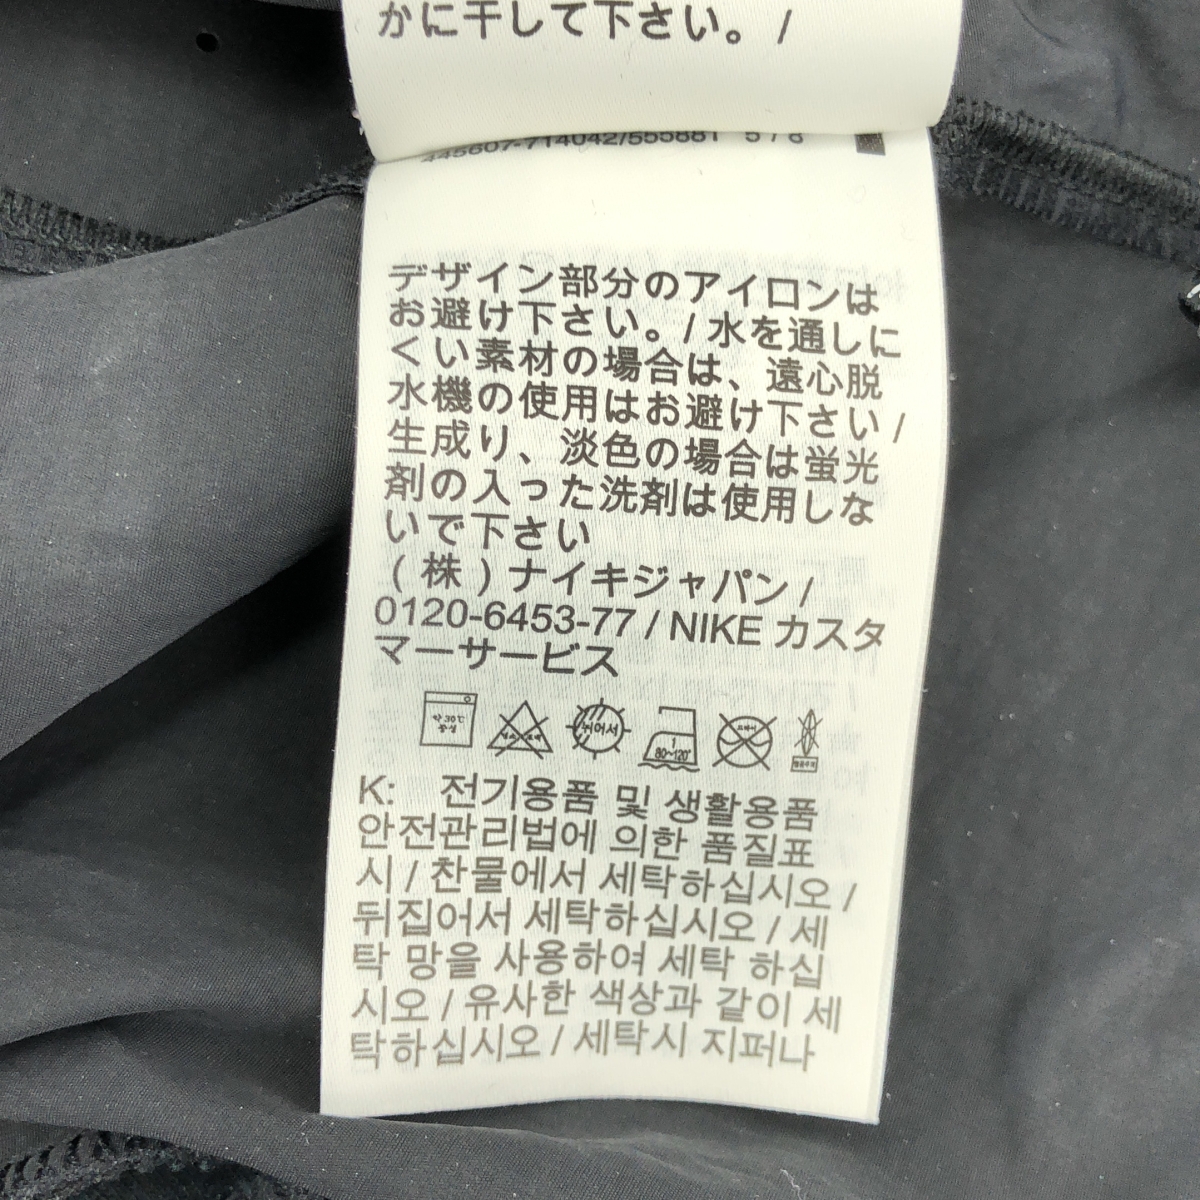 かに干して下さい。/
445607-714042/555881 5 / 8
デザイン部分のアイロンは
お避け下さい。/ 水を通しに
くい素材の場合は、遠心脱
水機の使用はお避け下さい /
生成り、淡色の場合は蛍光
剤の入った洗剤は使用しな
いで下さい
(株)ナイキジャパン /
0120-6453-77 / NIKE カスタ
マーサービス
약 30℃
중성
뉘어서
1
80~120°
K: 전기용품 및 생활용품
안전관리법에 의한 품질표
시 / 찬물에서 세탁하십시오 /
뒤집어서 세탁하십시오 / 세
탁 망을 사용하여 세탁 하십
시오 / 유사한 색상과 같이 세
탁하십시오 / 세탁시 지퍼나